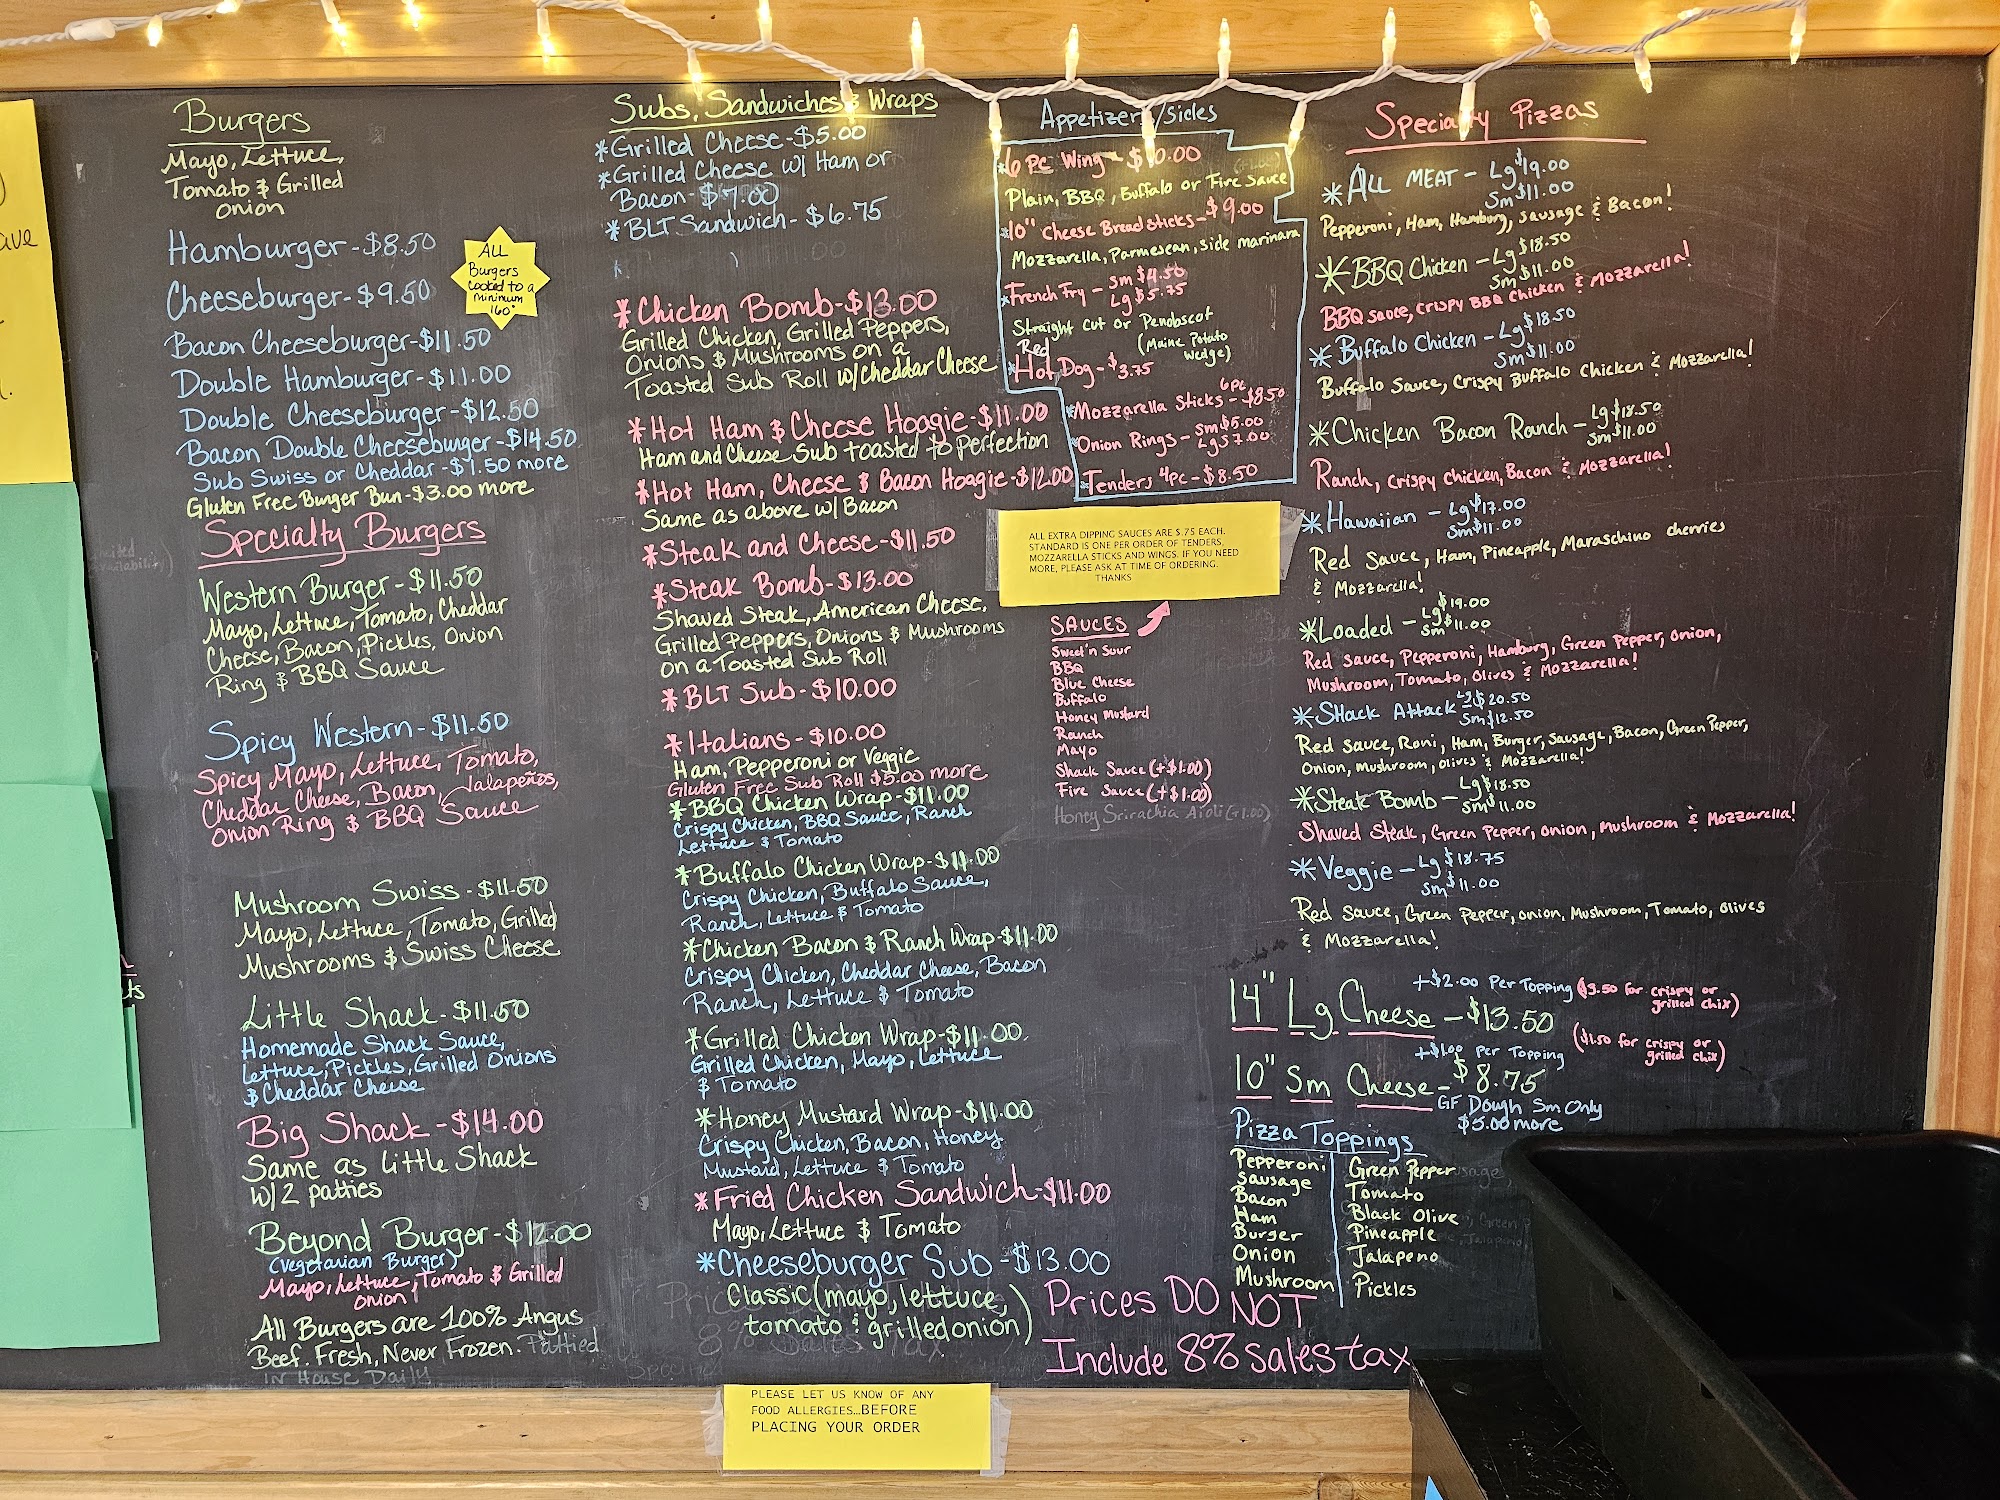 Burgers
Mayo, Lettuce,
Tomato & Grilled
Onion
Hamburger - $8.50
Cheeseburger - $9.50
Bacon Cheeseburger - $11.50
Double Hamburger - $11.00
Double Cheeseburger - $12.50
Bacon Double Cheeseburger - $14.50
Sub Swiss or Cheddar - $1.50 more
Gluten Free Burger Bun - $3.00 more
ALL
Burgers
cooked to a
minimum
160°
Specialty Burgers
Western Burger - $11.50
Mayo, Lettuce, Tomato, Cheddar
Cheese, Bacon, Pickles, Onion
Ring & BBQ Sauce
Spicy Western - $11.50
Spicy Mayo, Lettuce, Tomato,
Cheddar Cheese, Bacon, Jalapeños,
Onion Ring & BBQ Sauce
Mushroom Swiss - $11.50
Mayo, Lettuce, Tomato, Grilled
Mushrooms & Swiss Cheese
Little Shack - $11.50
Homemade Shack Sauce,
Lettuce, Pickles, Grilled Onions
& Cheddar Cheese
Big Shack - $14.00
Same as Little Shack
w/2 patties
Beyond Burger - $12.00
(Vegetarian Burger)
Mayo, Lettuce, Tomato & Grilled
Onion
All Burgers are 100% Angus
Beef. Fresh, Never Frozen. Pattied
in House Daily
Subs, Sandwiches & Wraps
*Grilled Cheese - $5.00
*Grilled Cheese w/ Ham or
Bacon - $7.00
*BLT Sandwich - $6.75
*Chicken Bomb - $13.00
Grilled Chicken, Grilled Peppers,
Onions & Mushrooms on a
Toasted Sub Roll w/Cheddar Cheese
*Hot Ham & Cheese Hoagie - $11.00
Ham and Cheese Sub toasted to perfection
*Hot Ham, Cheese & Bacon Hoagie - $12.00
Same as above w/ Bacon
*Steak and Cheese - $11.50
*Steak Bomb - $13.00
Shaved Steak, American Cheese,
Grilled Peppers, Onions & Mushrooms
on a Toasted Sub Roll
*BLT Sub - $10.00
*Italians - $10.00
Ham, Pepperoni or Veggie
Gluten Free Sub Roll $5.00 more
*BBQ Chicken Wrap - $11.00
Crispy Chicken, BBQ Sauce, Ranch
Lettuce & Tomato
*Buffalo Chicken Wrap - $11.00
Crispy Chicken, Buffalo Sauce,
Ranch, Lettuce & Tomato
*Chicken Bacon & Ranch Wrap - $11.00
Crispy Chicken, Cheddar Cheese, Bacon
Ranch, Lettuce & Tomato
*Grilled Chicken Wrap - $11.00
Grilled Chicken, Mayo, Lettuce
& Tomato
*Honey Mustard Wrap - $11.00
Crispy Chicken, Bacon, Honey
Mustard, Lettuce & Tomato
*Fried Chicken Sandwich - $11.00
Mayo, Lettuce & Tomato
*Cheeseburger Sub - $13.00
Classic (mayo, lettuce,
tomato & grilled onion)
Appetizers/Sides
*6 Pc Wing - $10.00
Plain, BBQ, Buffalo or Fire Sauce
*10" Cheese Breadsticks - $9.00
Mozzarella, Parmesean, side marinara
*French Fry - Sm $4.50
Lg $5.75
Straight Cut or Penobscot
Red (Maine Potato
Wedge)
*Hot Dog - $3.75
*Mozzarella Sticks - 6pc $8.50
*Onion Rings - Sm $5.00
Lg $7.00
*Tenders 4pc - $8.50
ALL EXTRA DIPPING SAUCES ARE $.75 EACH.
STANDARD IS ONE PER ORDER OF TENDERS,
MOZZARELLA STICKS AND WINGS. IF YOU NEED
MORE, PLEASE ASK AT TIME OF ORDERING.
THANKS
SAUCES
Sweet'n Sour
BBQ
Blue Cheese
Buffalo
Honey Mustard
Ranch
Mayo
Shack Sauce (+$1.00)
Fire Sauce (+$1.00)
Honey Srirachia Aioli (+1.00)
Specialty Pizzas
*ALL MEAT - Lg $19.00
Sm $11.00
Pepperoni, Ham, Hamburg, Sausage & Bacon!
*BBQ Chicken - Lg $18.50
Sm $11.00
BBQ sauce, Crispy BBQ Chicken & Mozzarella!
*Buffalo Chicken - Lg $18.50
Sm $11.00
Buffalo Sauce, Crispy Buffalo Chicken & Mozzarella!
*Chicken Bacon Ranch - Lg $18.50
Sm $11.00
Ranch, Crispy Chicken, Bacon & Mozzarella!
*Hawaiian - Lg $17.00
Sm $11.00
Red Sauce, Ham, Pineapple, Maraschino cherries
& Mozzarella!
*Loaded - Lg $19.00
Sm $11.00
Red Sauce, Pepperoni, Hamburg, Green Pepper, Onion,
Mushroom, Tomato, Olives & Mozzarella!
*SHack Attack - Lg $20.50
Sm $12.50
Red Sauce, Roni, Ham, Burger, Sausage, Bacon, Green Pepper,
Onion, Mushroom, Olives & Mozzarella!
*Steak Bomb - Lg $18.50
Sm $11.00
Shaved Steak, Green Pepper, Onion, Mushroom & Mozzarella!
*Veggie - Lg $18.75
Sm $11.00
Red Sauce, Green Pepper, Onion, Mushroom, Tomato, Olives
& Mozzarella!
+$2.00 Per Topping ($3.50 for crispy or
grilled chix)
14" Lg Cheese - $13.50
+$1.00 per Topping ($1.50 for crispy or
grilled chix)
10" Sm Cheese - $8.75
GF Dough Sm Only
$5.00 more
Pizza Toppings
Pepperoni
Sausage
Bacon
Ham
Burger
Onion
Mushroom
Green Pepper
Tomato
Black Olive
Pineapple
Jalapeno
Pickles
Prices DO NOT
Include 8% sales tax
PLEASE LET US KNOW OF ANY
FOOD ALLERGIES...BEFORE
PLACING YOUR ORDER